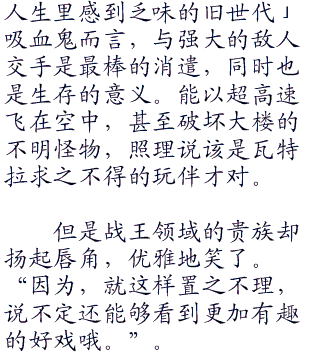 人生里感到乏味的旧世代」
吸血鬼而言，与强大的敌人
交手是最棒的消遣，同时也
是生存的意义。能以超高速
飞在空中，甚至破坏大楼的
不明怪物，照理说该是瓦特
拉求之不得的玩伴才对。
但是战王领域的贵族却
扬起唇角，优雅地笑了。
“因为，就这样置之不理，
说不定还能够看到更加有趣
的好戏哦。”。